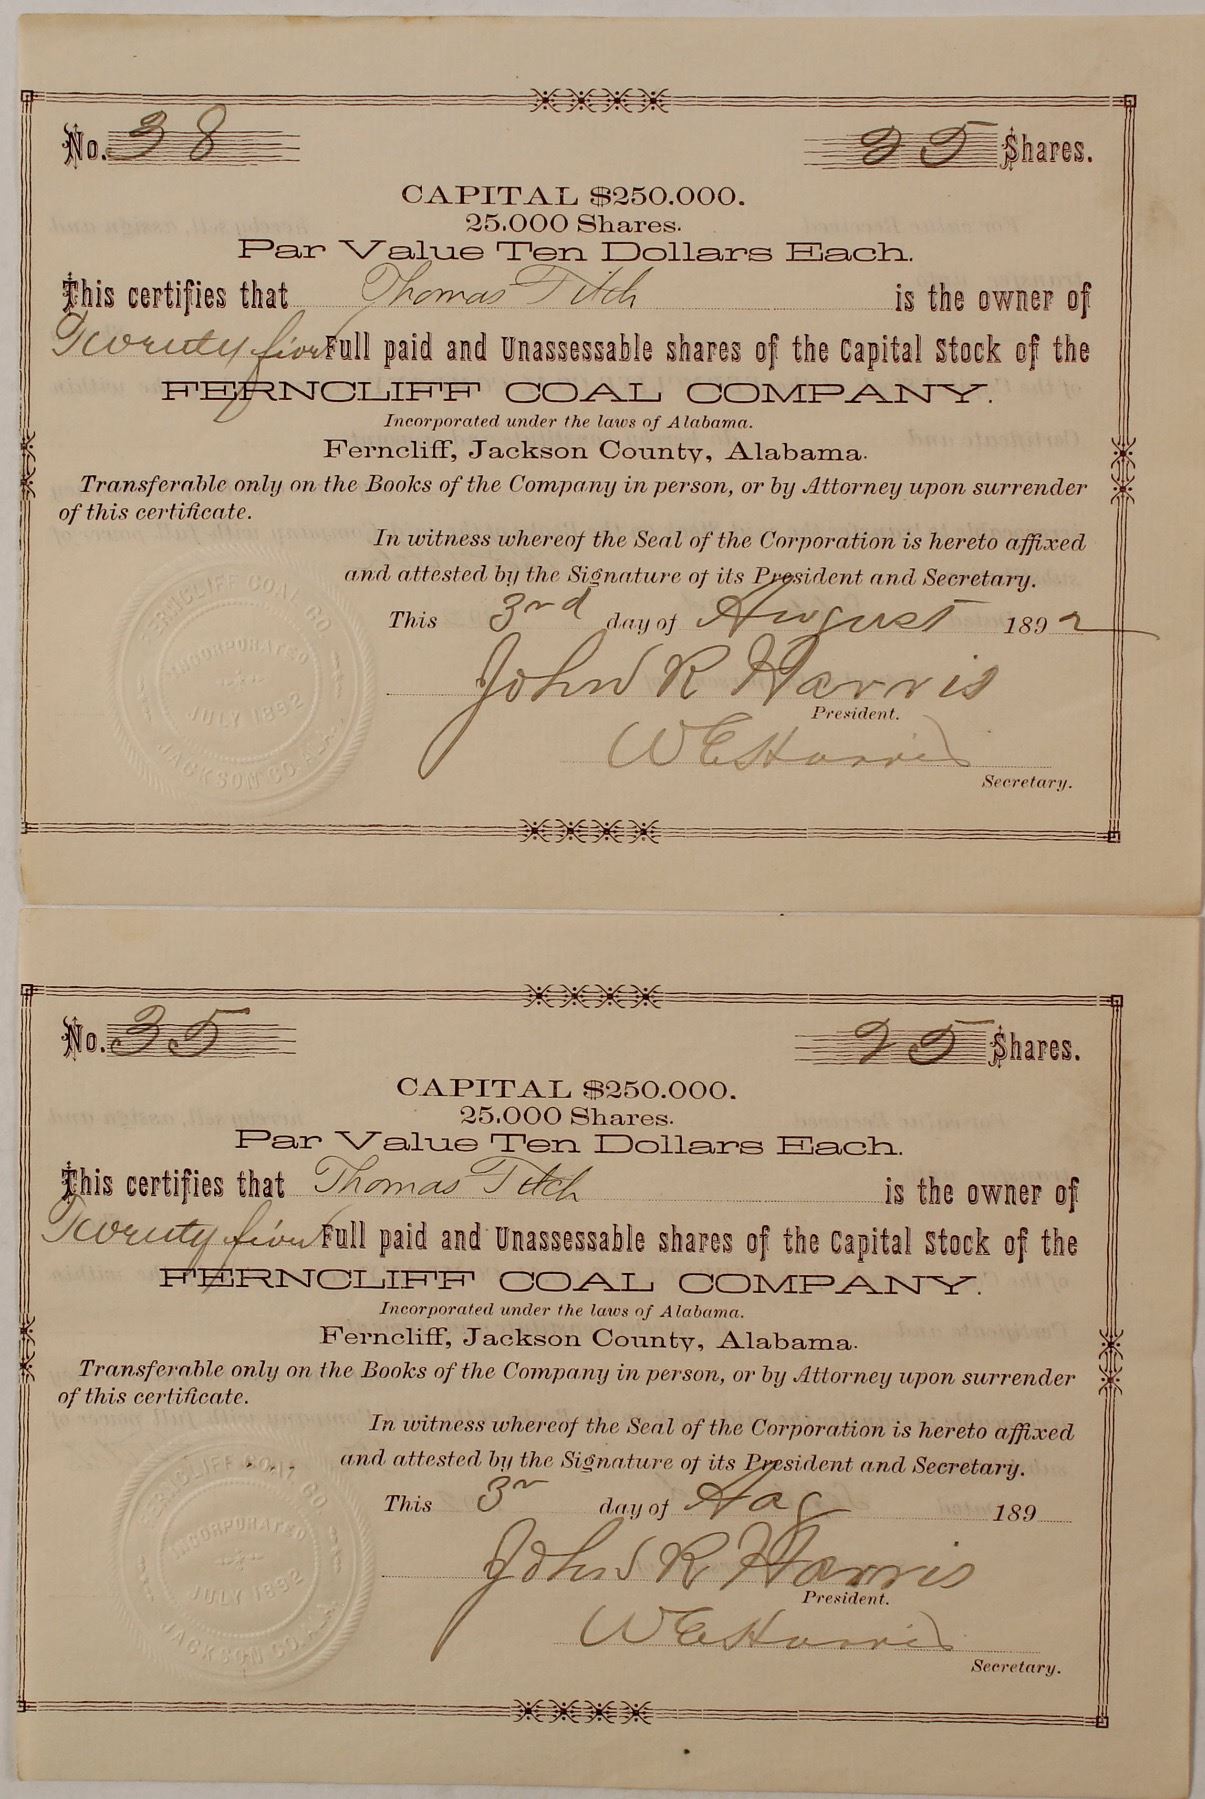 No. 38 25 Shares.
CAPITAL $250.000.
25.000 Shares.
Par Value Ten Dollars Each.
This certifies that Thomas Fitch is the owner of
Twenty five Full paid and Unassessable shares of the Capital Stock of the
FERNCLIFF COAL COMPANY.
Incorporated under the laws of Alabama.
Ferncliff, Jackson County, Alabama.
Transferable only on the Books of the Company in person, or by Attorney upon surrender
of this certificate.
In witness whereof the Seal of the Corporation is hereto affixed
and attested by the Signature of its President and Secretary.
This 3rd day of August 1892
John R Harris
President.
W E Harris
Secretary.
FERNCLIFF COAL CO
INCORPORATED
JULY 1892
JACKSON CO. ALA.
No. 35 25 Shares.
CAPITAL $250.000.
25.000 Shares.
Par Value Ten Dollars Each.
This certifies that Thomas Fitch is the owner of
Twenty five Full paid and Unassessable shares of the Capital Stock of the
FERNCLIFF COAL COMPANY.
Incorporated under the laws of Alabama.
Ferncliff, Jackson County, Alabama.
Transferable only on the Books of the Company in person, or by Attorney upon surrender
of this certificate.
In witness whereof the Seal of the Corporation is hereto affixed
and attested by the Signature of its President and Secretary.
This 3r day of Aug 189
John R Harris
President.
W E Harris
Secretary.
FERNCLIFF COAL CO
INCORPORATED
JULY 1892
JACKSON CO. ALA.